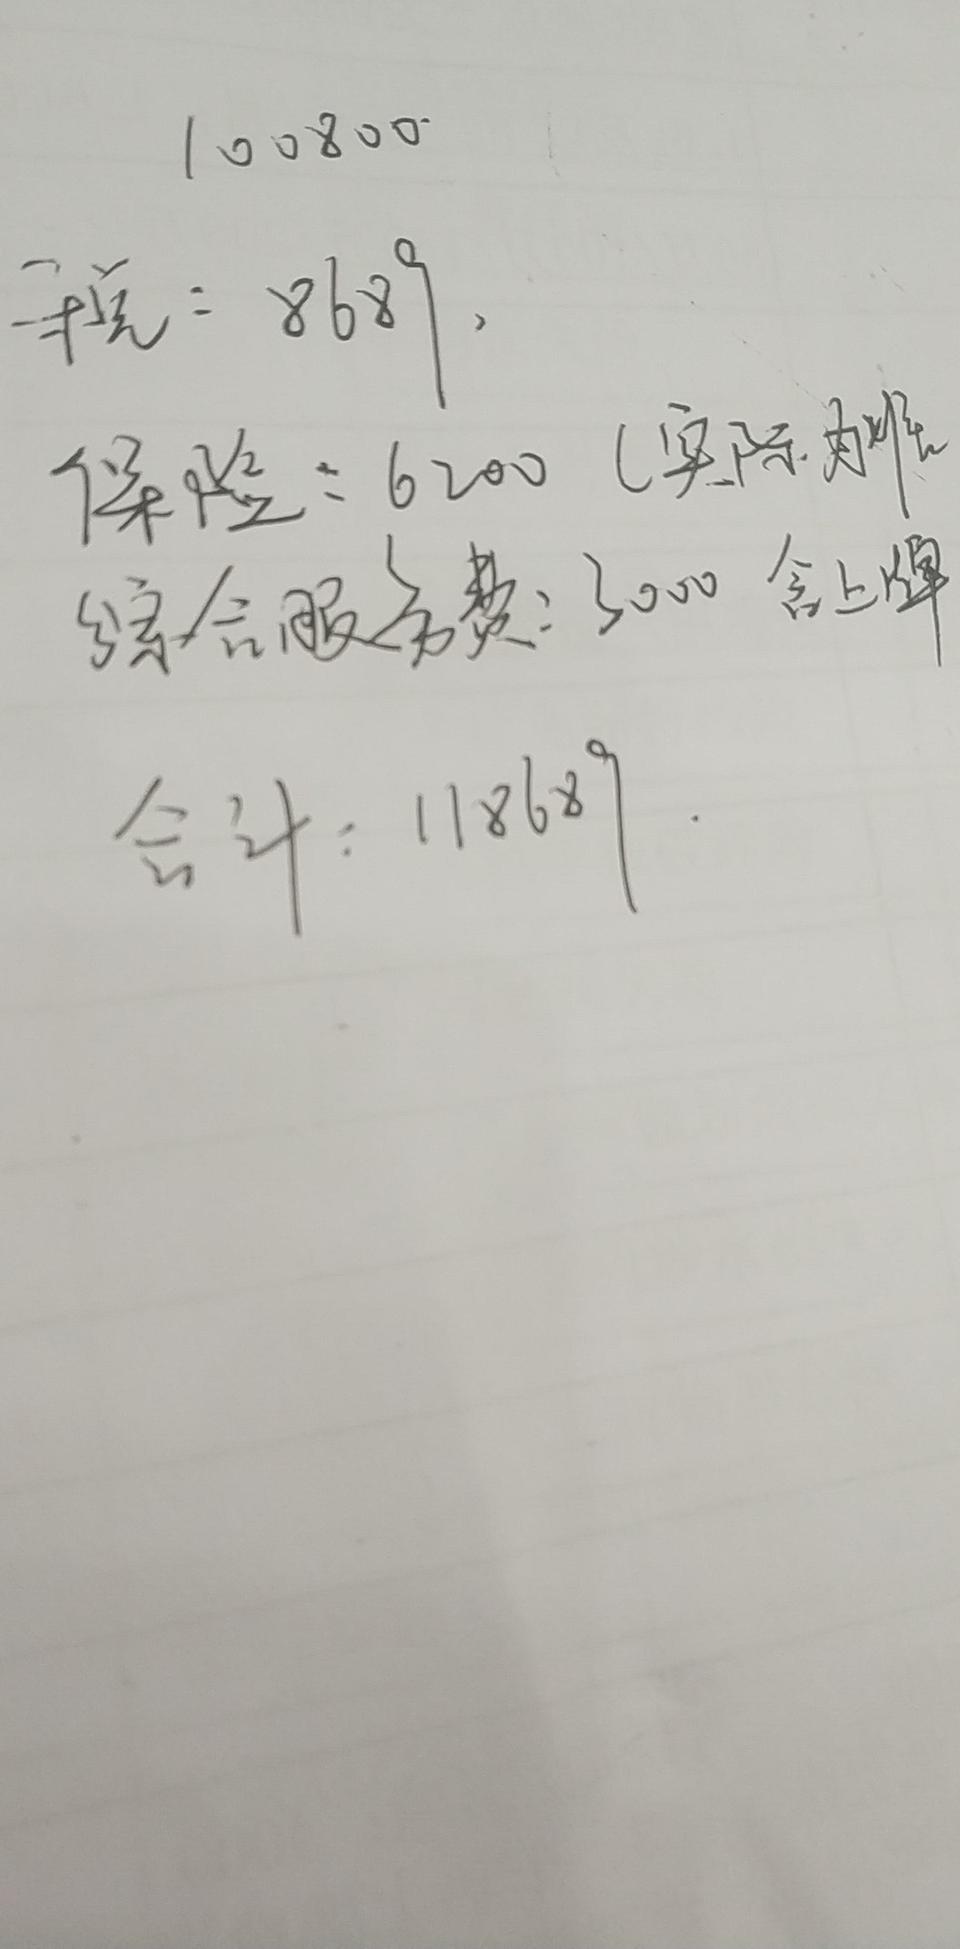 100800
车税:8689,
保险:6200(实际为准
综合服务费:3000 含上牌
合计:118689.